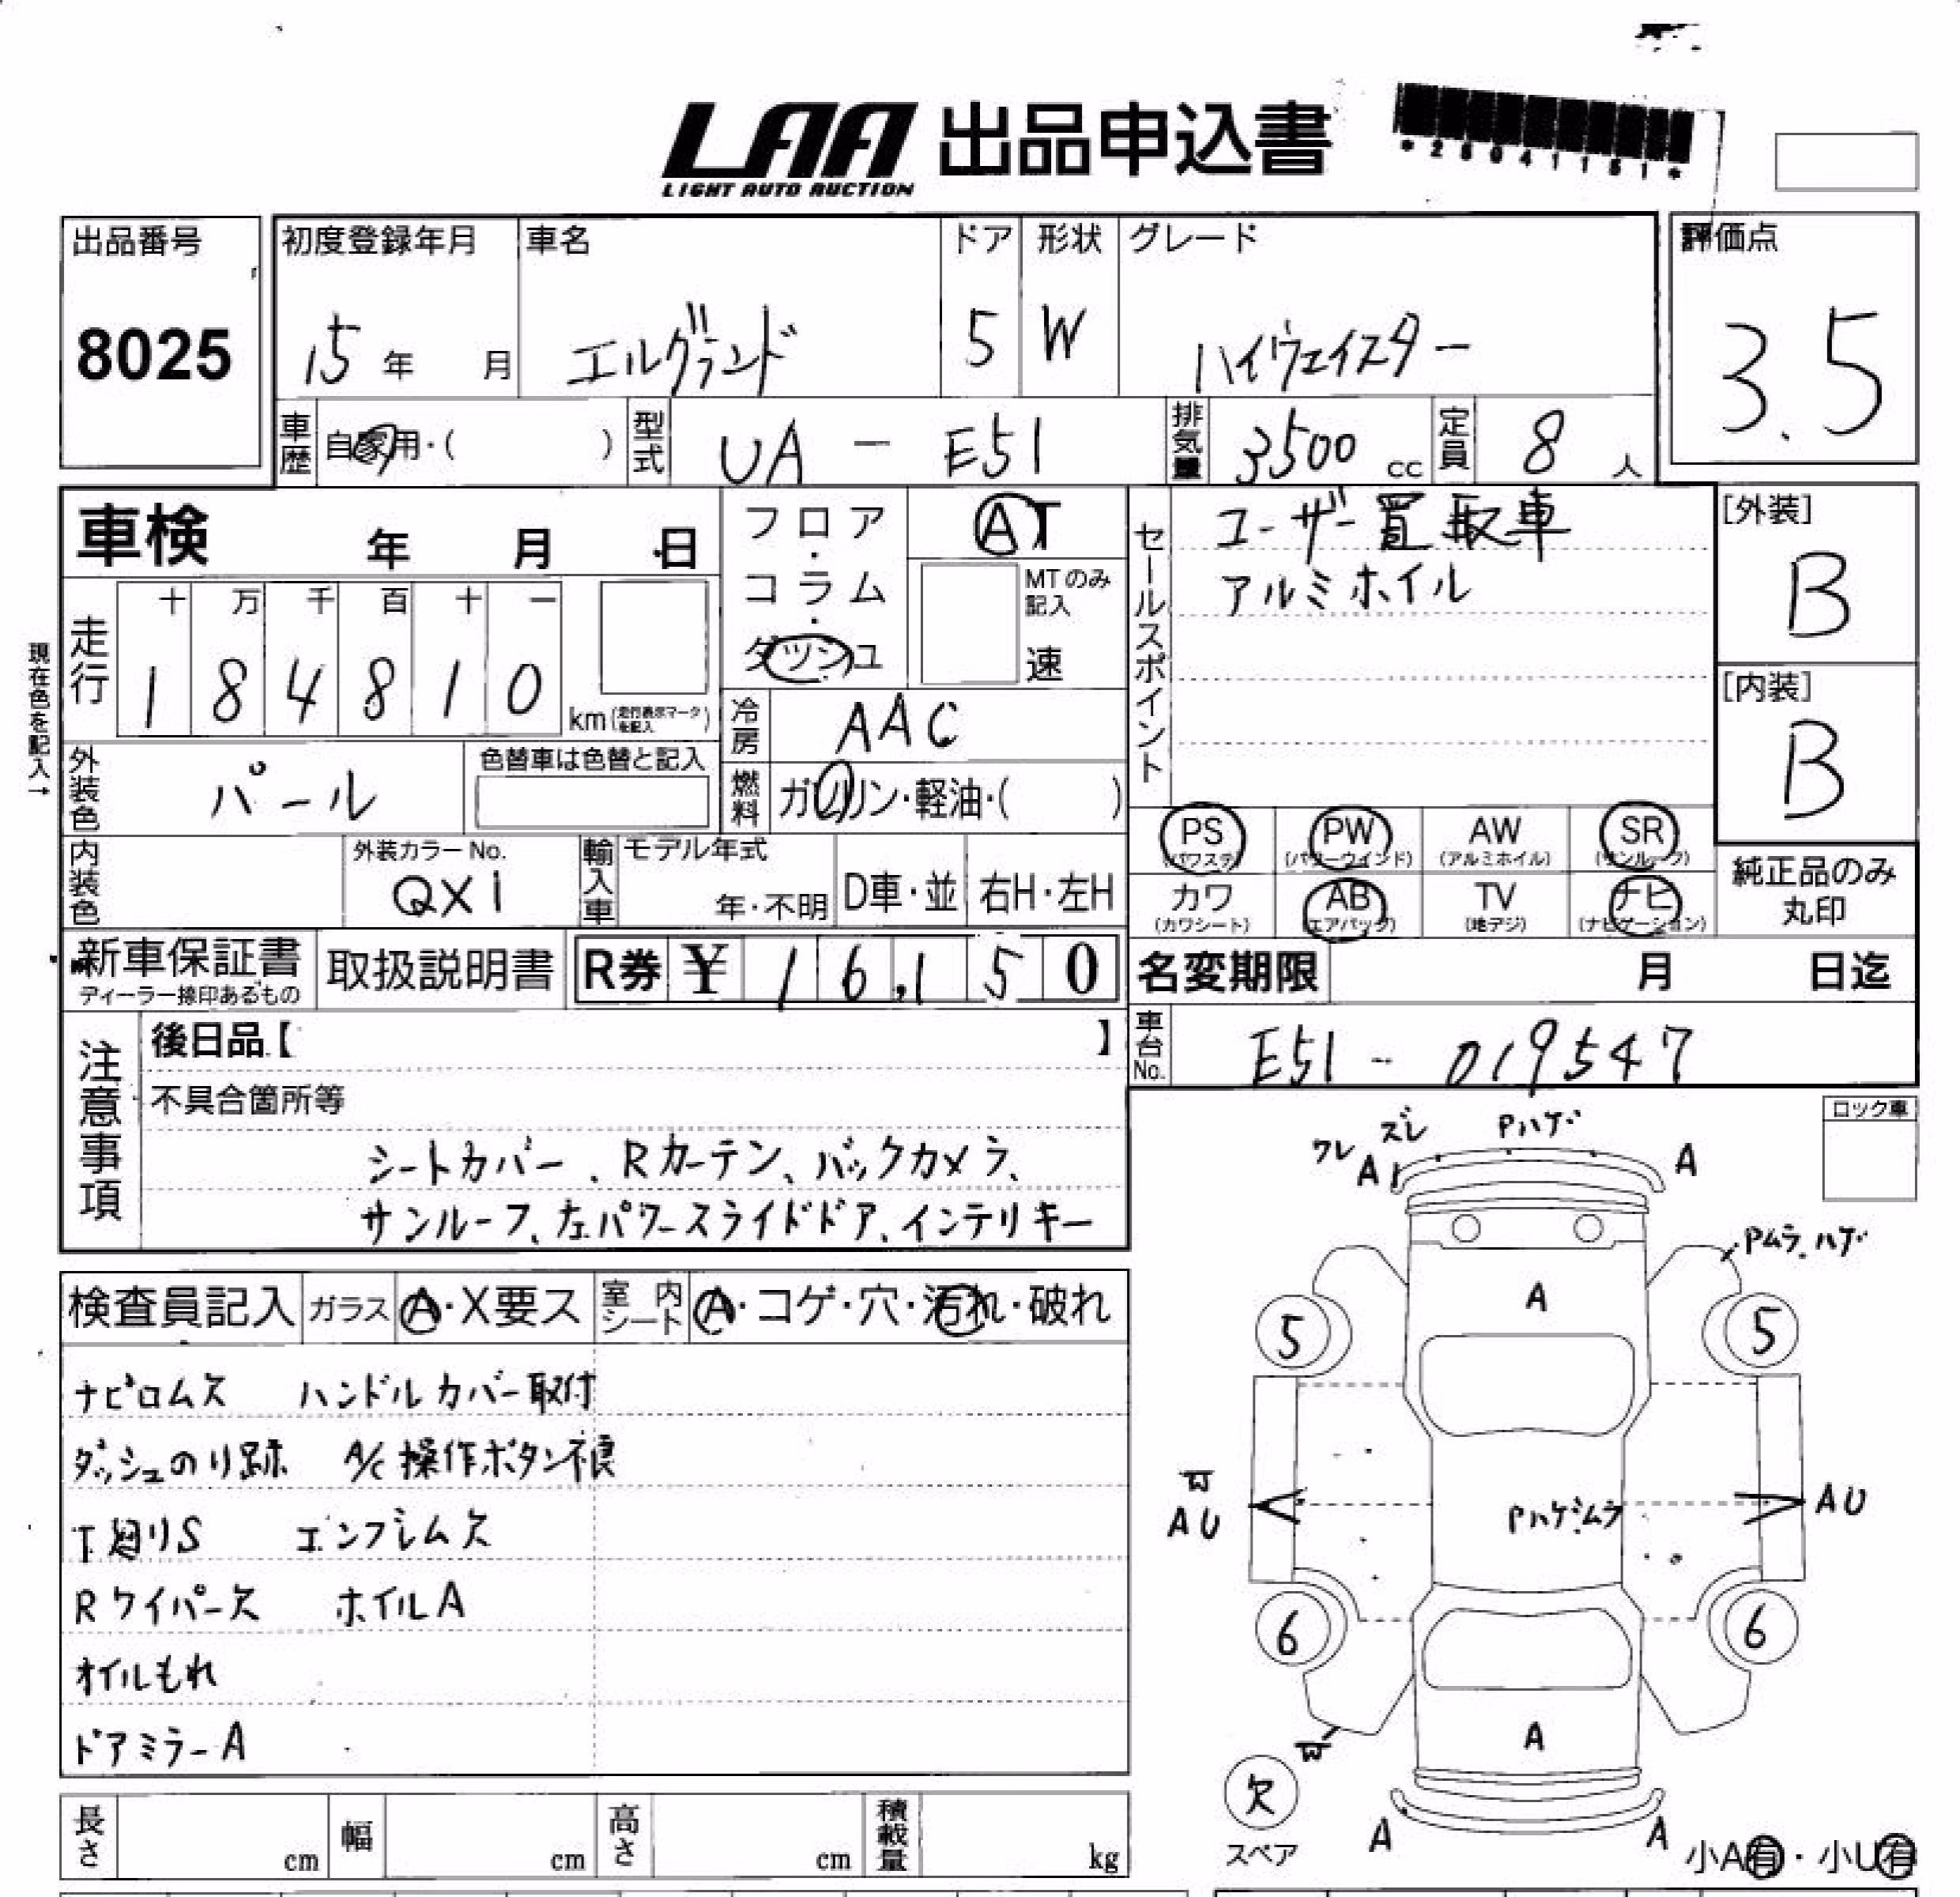 LAA 出品申込書
LIGHT AUTO AUCTION
*26041161*
出品番号 初度登録年月 車名 ドア 形状 グレード 評価点
8025 15年 月 エルグランド 5 W ハイウェイスター 3.5
車歴 自家用・( ) 型式 UA - E51 排気量 3500 cc 定員 8 人
車検 年 月 日
フロア・コラム・ダッシュ
AT
MTのみ記入
速
現在色を記入→
走行 十 万 千 百 十 一
1 8 4 8 1 0 km (走行表示マークを記入)
冷房 AAC
燃料 ガソリン・軽油・( )
セールスポイント
ユーザー買取車
アルミホイル
[外装]
B
[内装]
B
外装色 パール 色替車は色替と記入
内装色 外装カラーNo. QX1
輸入車 モデル年式 年・不明 D車・並 右H・左H
PS (パワステ) PW (パワーウインド) AW (アルミホイル) SR (サンルーフ)
カワ (カワシート) AB (エアバッグ) TV (地デジ) ナビ (ナビゲーション)
純正品のみ
丸印
新車保証書 ディーラー捺印あるもの 取扱説明書 R券 ¥ 16,150
名変期限 月 日迄
車台No. E51 - 019547
注意事項
後日品【 】
不具合箇所等
シートカバー、Rカーテン、バックカメラ、
サンルーフ、左パワースライドドア、インテリキー
ロック車
ワレ ズレ Pハゲ
A A
Pムラ、ハゲ
A
5 5
AU PハゲムラAU
6 6
A
欠
スペア
A A
小A有・小U有
検査員記入 ガラス A・X要ス 室内シート A・コゲ・穴・汚れ・破れ
ナビロム欠 ハンドルカバー取付
ダッシュのり跡 A/C操作ボタン不良
下廻りS エンブレム欠
Rワイパー欠 ホイルA
オイルもれ
ドアミラーA
長さ cm 幅 cm 高さ cm 積載量 kg